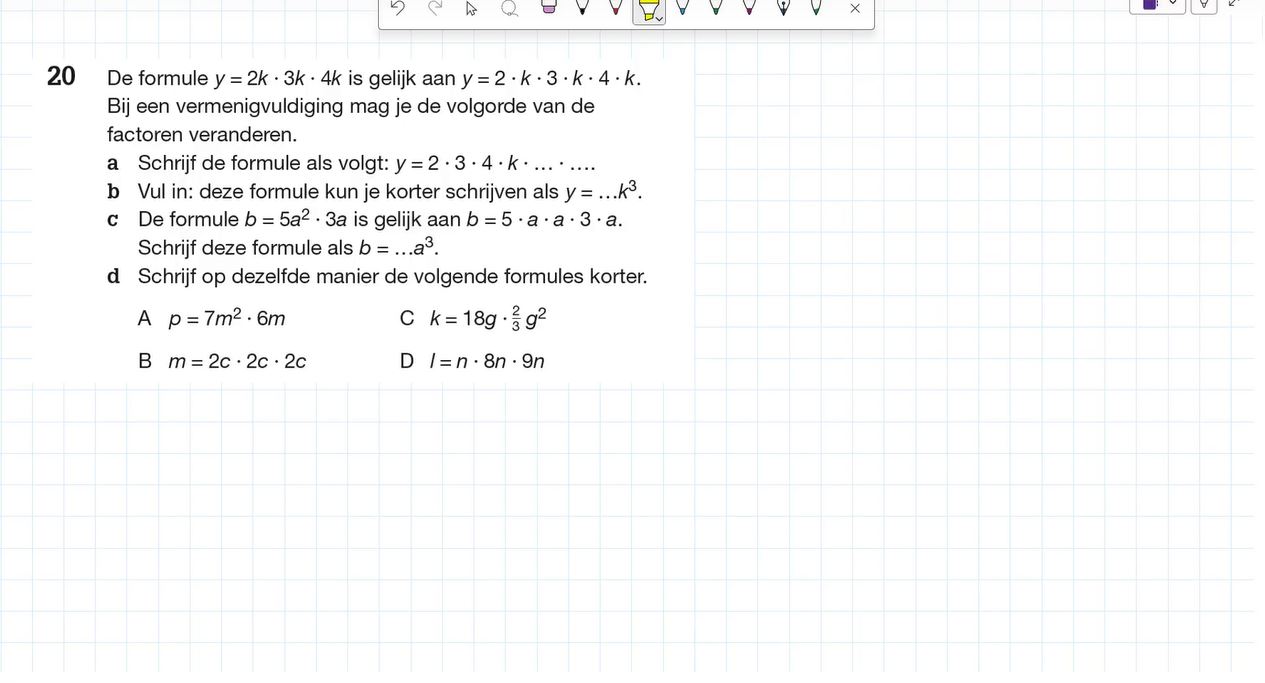 20 De formule y = 2k · 3k · 4k is gelijk aan y = 2 · k · 3 · k · 4 · k.
Bij een vermenigvuldiging mag je de volgorde van de
factoren veranderen.
a Schrijf de formule als volgt: y = 2 · 3 · 4 · k · … · ….
b Vul in: deze formule kun je korter schrijven als y = …k³.
c De formule b = 5a² · 3a is gelijk aan b = 5 · a · a · 3 · a.
Schrijf deze formule als b = …a³.
d Schrijf op dezelfde manier de volgende formules korter.
A p = 7m² · 6m C k = 18g · 2/3 g²
B m = 2c · 2c · 2c D l = n · 8n · 9n